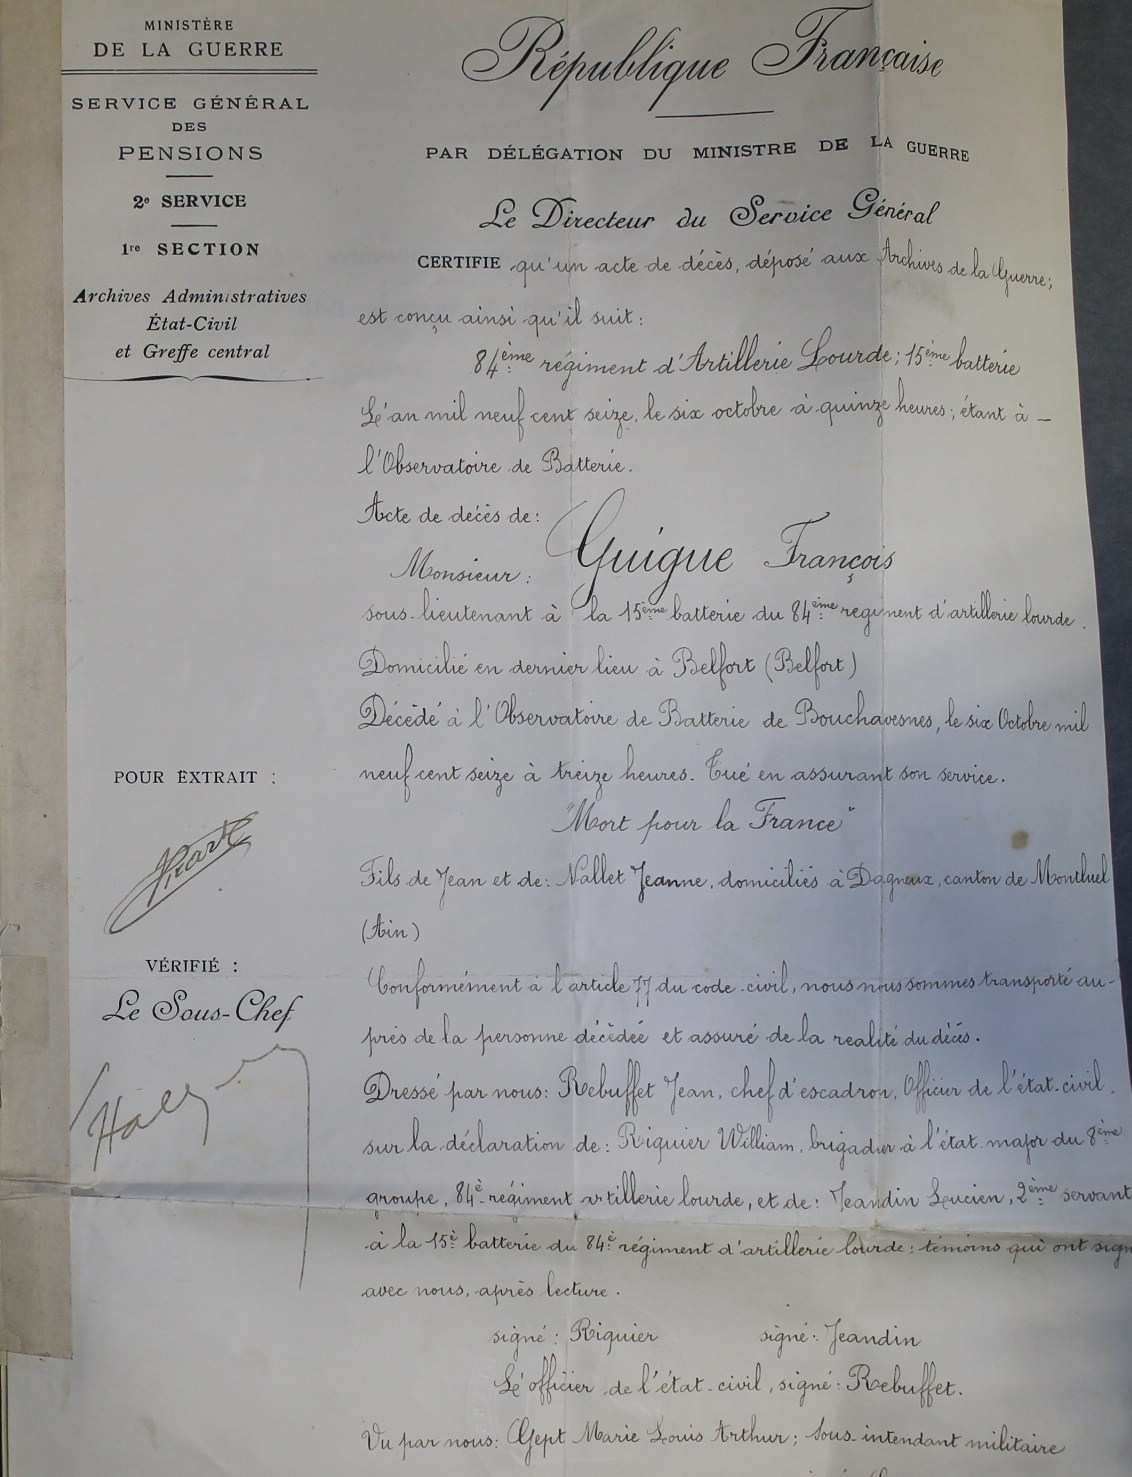 MINISTÈRE
DE LA GUERRE
SERVICE GÉNÉRAL
DES
PENSIONS
2e SERVICE
1re SECTION
Archives Administratives
État-Civil
et Greffe central
République Française
PAR DÉLÉGATION DU MINISTRE DE LA GUERRE
Le Directeur du Service Général
CERTIFIE qu'un acte de décès, déposé aux Archives de la Guerre;
est conçu ainsi qu'il suit:
84ème régiment d'Artillerie Lourde; 15ème batterie
L'an mil neuf cent seize, le six octobre à quinze heures; étant à —
l'Observatoire de Batterie.
Acte de décès de:
Monsieur: Guigue François
sous-lieutenant à la 15ème batterie du 84ème régiment d'artillerie lourde.
Domicilié en dernier lieu à Belfort (Belfort)
Décédé à l'Observatoire de Batterie de Bouchavesnes, le six Octobre mil
neuf cent seize à treize heures. Tué en assurant son service.
"Mort pour la France"
Fils de Jean et de: Nallet Jeanne, domiciliés à Dagneux, canton de Montluel
(Ain)
Conformément à l'article 77 du code-civil, nous nous sommes transporté au-
près de la personne décédée et assuré de la realité du décès.
Dressé par nous: Rebuffet Jean, chef d'escadron, Officier de l'état-civil,
sur la déclaration de: Riquier William, brigadier à l'état major du 8ème
groupe, 84è régiment artillerie lourde, et de: Jeandin Lucien, 2ème servant
à la 15è batterie du 84è régiment d'artillerie lourde: témoins qui ont sign
avec nous, après lecture.
signé: Riquier signé: Jeandin
L'officier de l'état-civil, signé: Rebuffet.
Vu par nous: Gept Marie Louis Arthur; Sous-intendant militaire
POUR EXTRAIT :
VÉRIFIÉ :
Le Sous-Chef